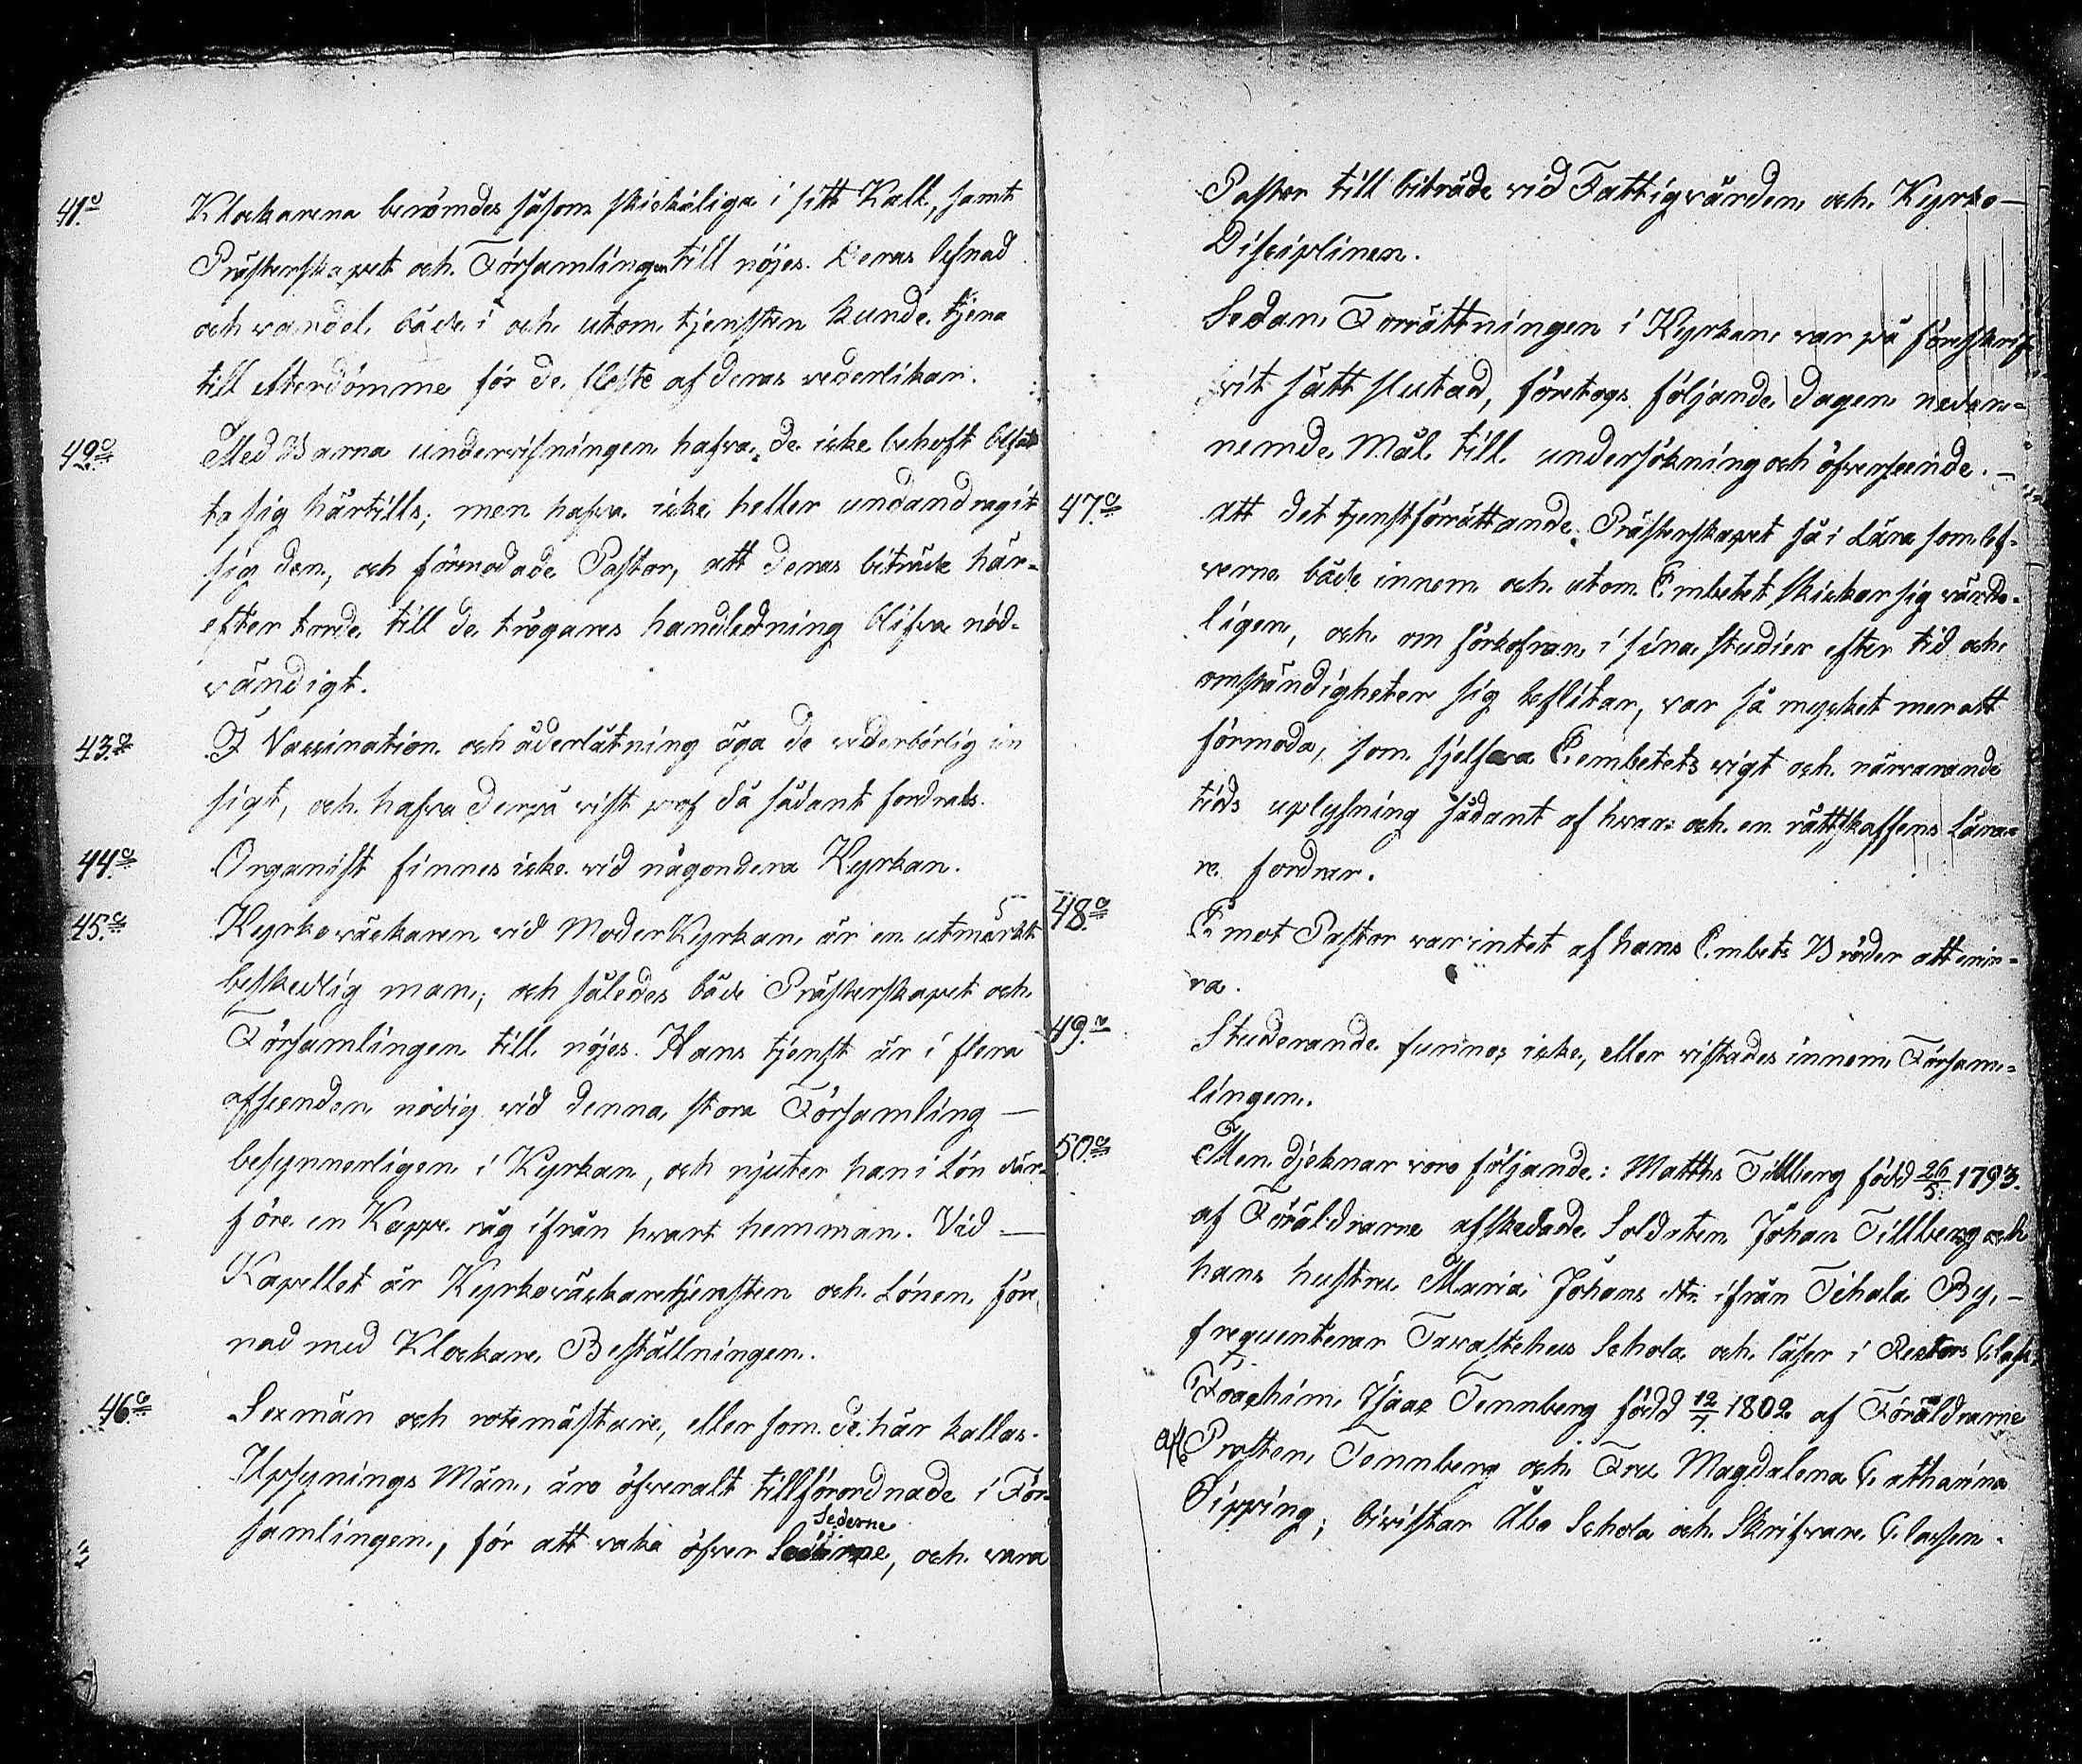 41.o Klockarena berömdes såsom skickeliga i sitt Kall, samt
Prästerskapet och Församlingen till nöjes. Deras lefnad
och vandel både i och utom tjensten kunde tjena
till efterdömme för de fleste af deras vederlikar.
42.o Med Barna undervisningen hafva de icke behöft befat-
ta sig härtills; men hafva icke heller undandragit
sig den, och förmodade Pastor, att deras biträde här-
efter torde till de trögares handledning blifva nöd-
vändigt.
43.o I Vaccination och åderlåtning äga de vederbörlig in
sigt, och hafva derpå vist prof då sådant fordrats.
44.o Organist finnes icke vid någondera Kyrkan.
45.o Kyrkoväckaren vid ModerKyrkan är en utmärkt
beskedlig man; och således både Prästerskapet och
Församlingen till nöjes. Hans tjenst är i flera
afseenden nödig vid denna stora Församling —
besynnerligen i Kyrkan, och njuter han i Lön där-
före en Kappe råg ifrån hvart hemman. Vid —
Kapellet är Kyrkoväckaretjensten och Lönen för
nad med Klockare Beställningen.
46.o Sexmän och rotemästare, eller som de här kallas
Upsynings Män, äro öfveralt tillförordnade i För-
samlingen, för att vaka öfver Sederne, och vara
Sederne
Pastor till biträde vid Fattigvården och Kyrko-
Disciplinen.
Sedan Förrättningen i Kyrkan var på föreskrif-
vit sätt slutad, företogs följande dagen nedan-
nemde Mål till undersökning och öfverseende. —
47.o Att det tjenstförrättande Prästerskapet så i Lära som lef-
verne både innom och utom Embetet skickar sig värde-
ligen, och om förkofran i sina studier efter tid och
omständigheter sig beflitar, var så mycket mer att
förmoda, som sjelfva Embetets vigt och närvarande
tids uplysning sådant af hvar och en rättskaffens Lära-
re fordrar.
48.o Emot Pastor var intet af hans Embets Bröder att erin-
ra.
49.o Studerande funnos icke, eller vistades innom Försam-
lingen.
50.o Men djeknar voro följande: Matths Tillberg född 26/5 1793.
af Föräldrarne afskedade Soldaten Johan Tillberg och
hans hustru Maria Johans dtr ifrån Tihala By, —
frequenterar Tavastehus Schola och läser i Rectors Class.
Joachim Isaac Tennberg född 12/7 1802 af Föräldrarne
afl. Prosten Tennberg och Fru Magdalena Catharina
Sipping; bivistar Åbo Schola och Skrifvare Classen.